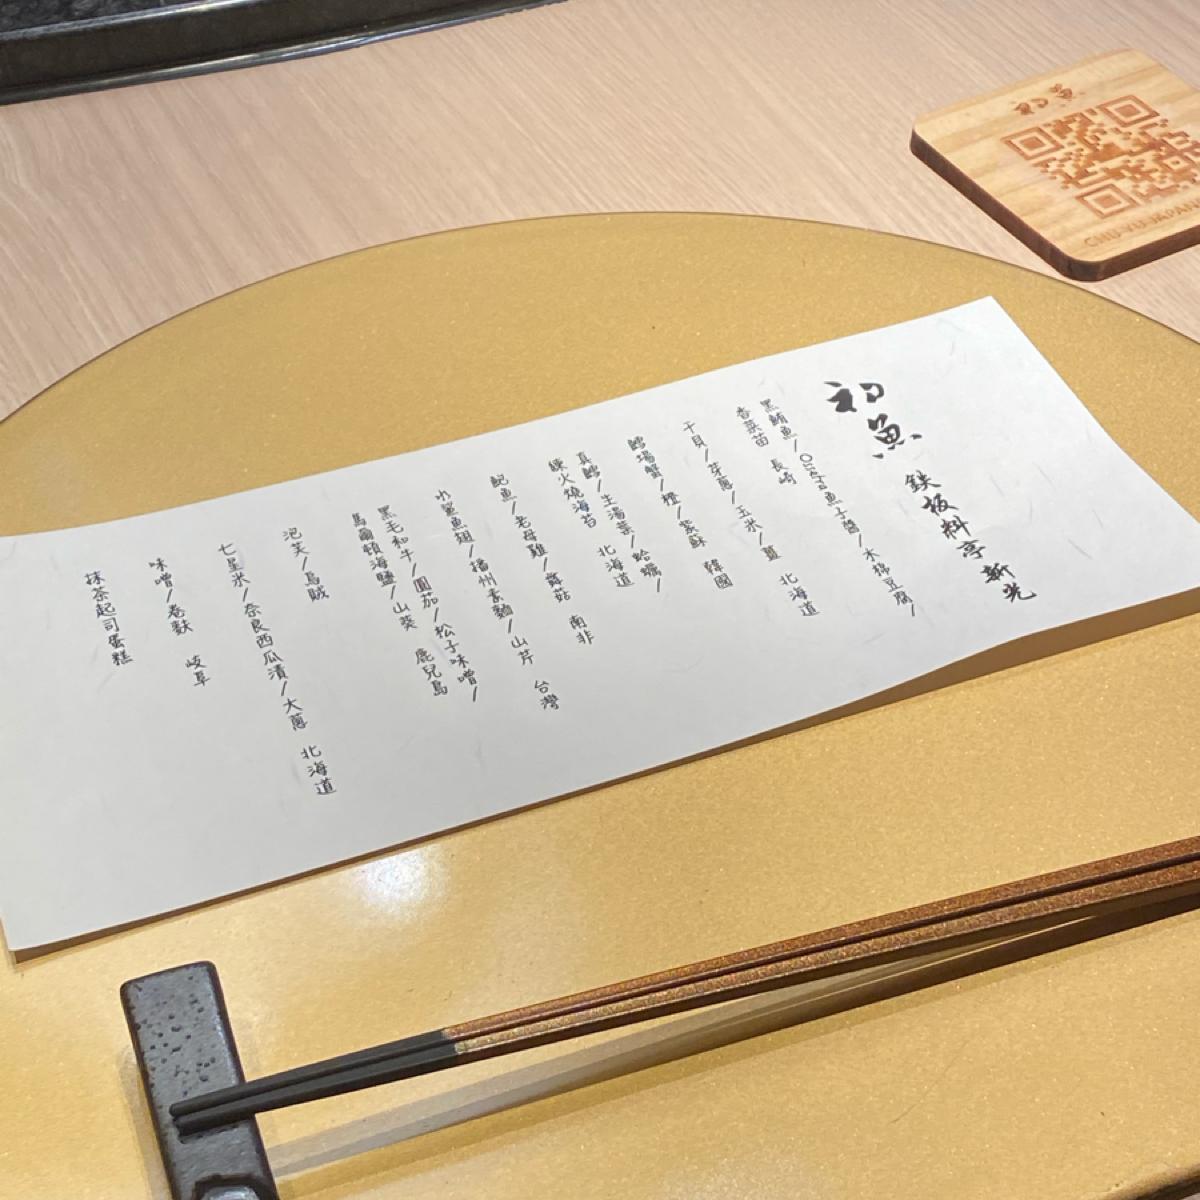 初魚 鉄板料亭新光
黑鮪魚/Ossetra魚子醬/木棉豆腐/
香菜苗 長崎
干貝/芽蔥/玉米/薑 北海道
鱈場蟹/橙/紫蘇 韓國
真鱈/生湯葉/蛤蠣/
練火燒海苔 北海道
鮑魚/老母雞/舞菇 南非
小鯊魚翅/播州素麵/山芹 台灣
黑毛和牛/圓茄/松子味噌/
馬爾頓海鹽/山葵 鹿兒島
泡芙/烏賊
七星米/奈良西瓜漬/大蔥 北海道
味噌/卷麩 岐阜
抹茶起司蛋糕
初魚
CHU YU JAPAN